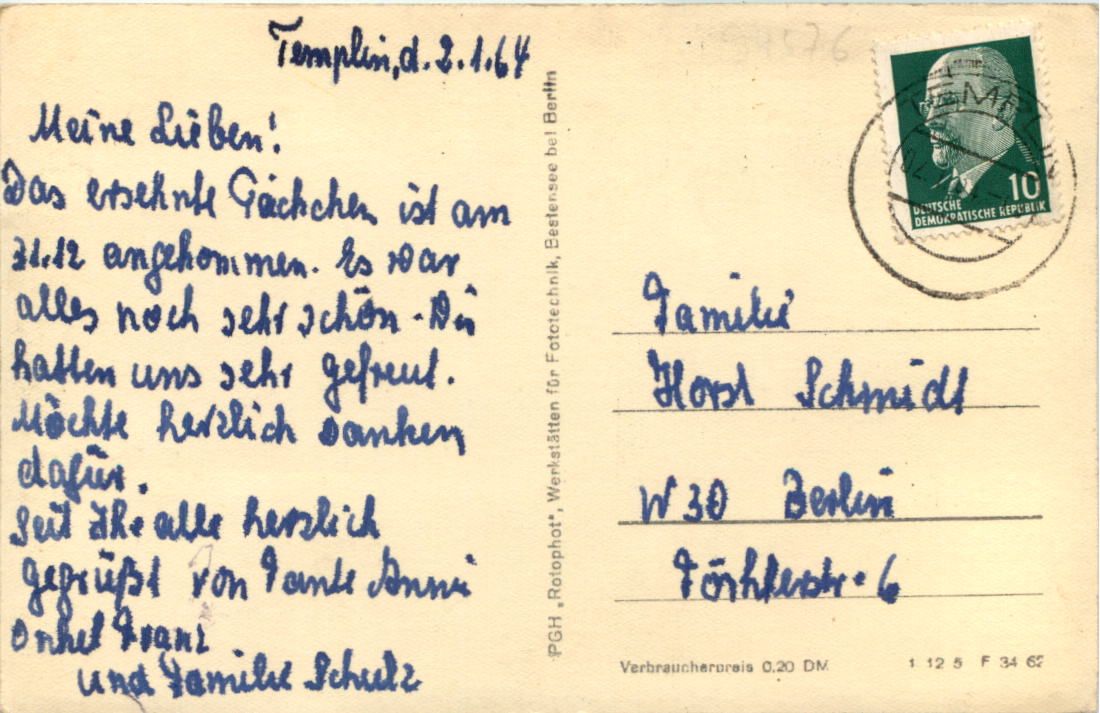 Templin, d. 2.1.64
Meine Lieben!
Das ersehnte Päckchen ist am
31.12 angekommen. Es war
alles noch sehr schön. Wir
hatten uns sehr gefreut.
Möchte herzlich danken
dafür.
Seit Ihr alle herzlich
gegrüßt von Tante Anni
Onkel Franz
und Familie Schulz
PGH „Rotophot", Werkstätten für Fototechnik, Bestensee bei Berlin
94576
TEMPLIN
10
DEUTSCHE
DEMOKRATISCHE REPUBLIK
Familie
Horst Schmidt
W 30 Berlin
6
Verbraucherpreis 0,20 DM
1 12 5 F 34 62